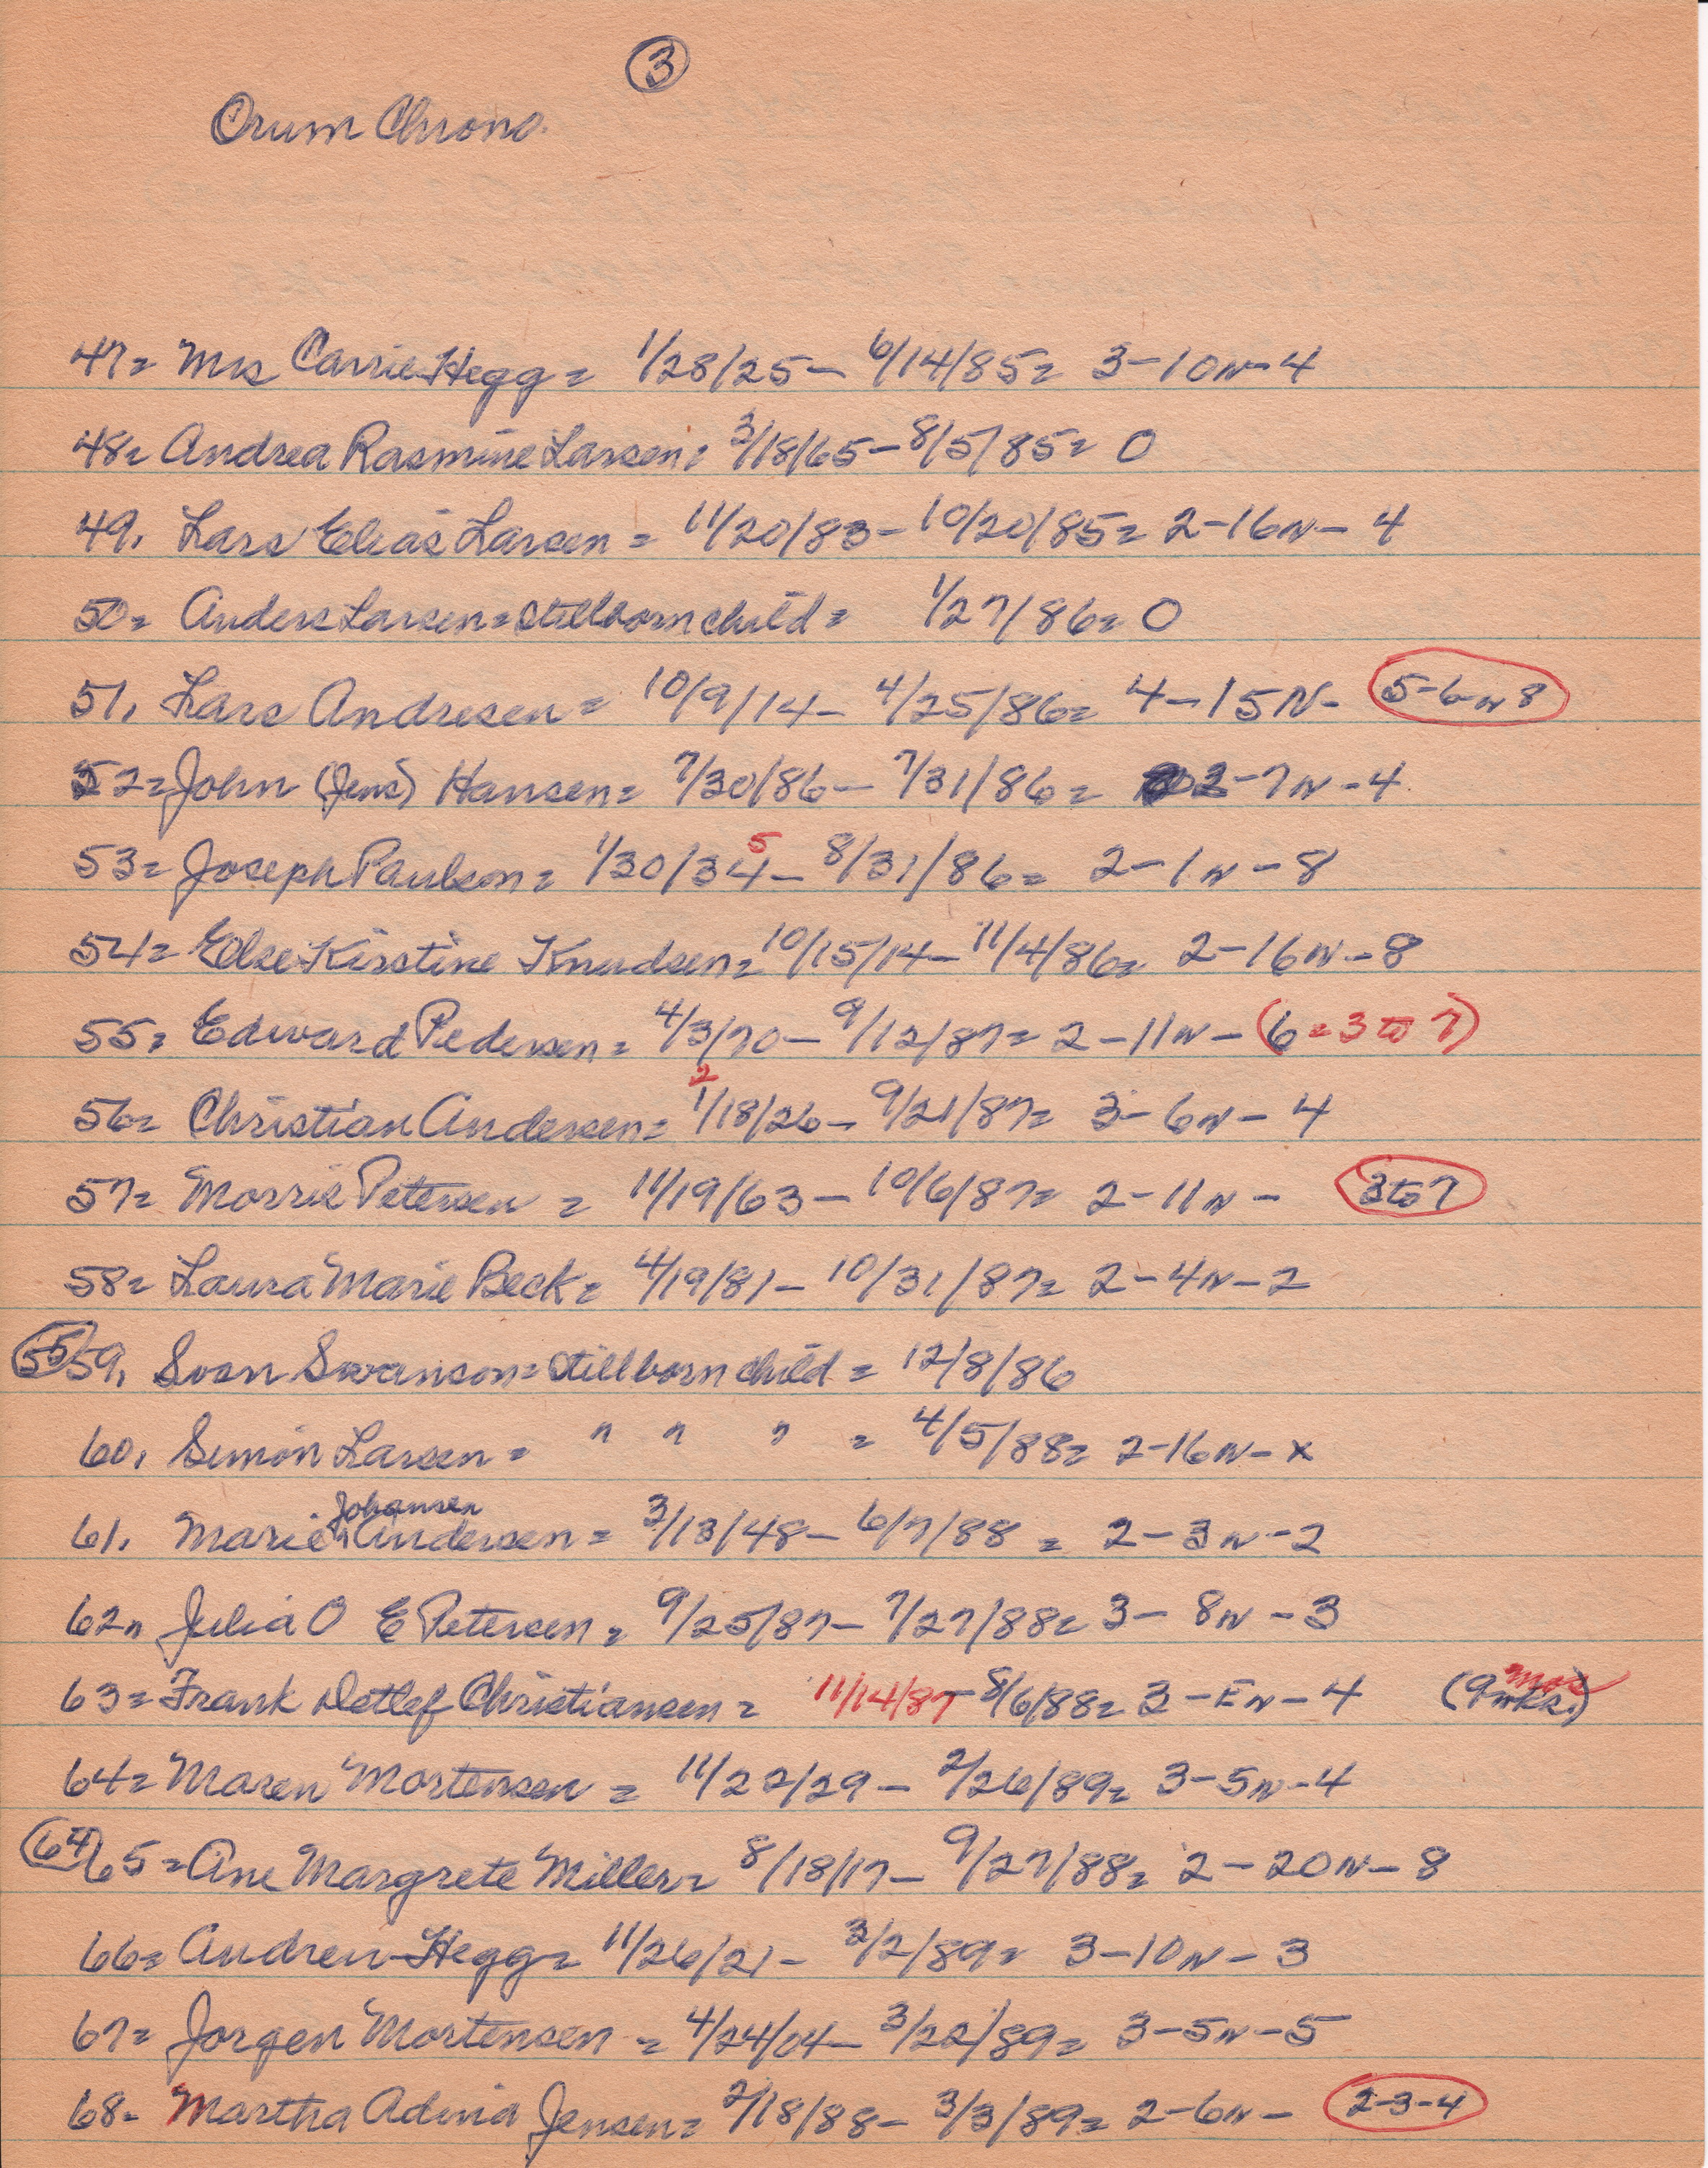 3
Orum Chrono.
47= Mrs Carrie Hegg = 1/28/25 - 6/14/85= 3-10N-4
48= Andrea Rasmine Larsen= 3/18/65 - 8/5/85= 0
49, Lars Elias Larsen = 11/20/83 - 10/20/85= 2-16N-4
50= Anders Larsen=Stillborn child = 1/27/86= 0
51, Lars Andresen = 10/9/14 - 4/25/86= 4-15N- 5-6-N 8
52= John (Jens) Hansen= 7/30/86 - 7/31/86 = 2-7N-4
53= Joseph Paulson= 1/30/34 5 - 8/31/86 = 2-1N-8
54= Else Kirstine Knudsen= 10/15/14 - 11/4/86= 2-16N-8
55= Edward Pedersen= 4/3/70 - 9/12/87= 2-11N- (6=3 to 7)
2
56= Christian Andersen= 1/18/26 - 9/21/87= 3-6N-4
57= Morris Petersen = 11/19/63 - 10/6/87= 2-11N- 3 to 7
58= Laura Marie Beck= 4/19/81 - 10/31/87= 2-4N-2
55 59, Svan Swanson=Stillborn child = 12/8/86
60, Simon Larsen= " " " = 4/5/88= 2-16N-x
Johansen
61, Marie Andersen = 3/13/48 - 6/7/88 = 2-3N-2
62" Julia O E Petersen = 9/25/87 - 7/27/88= 3-8N-3
63= Frank Detlef Christiansen = 11/14/87 - 8/6/88= 3-EN-4 (9 wks.) mos
64= Maren Mortensen = 11/22/29 - 2/26/89= 3-5N-4
64 65=Ane Margrete Miller= 8/18/17 - 9/27/88= 2-20N-8
66= Andrew Hegg= 11/26/21 - 3/2/89= 3-10N-3
67= Jorgen Mortensen = 4/24/04 - 3/22/89= 3-5N-5
68= Martha Adina Jensen= 2/18/88 - 3/3/89= 2-6N- 2-3-4